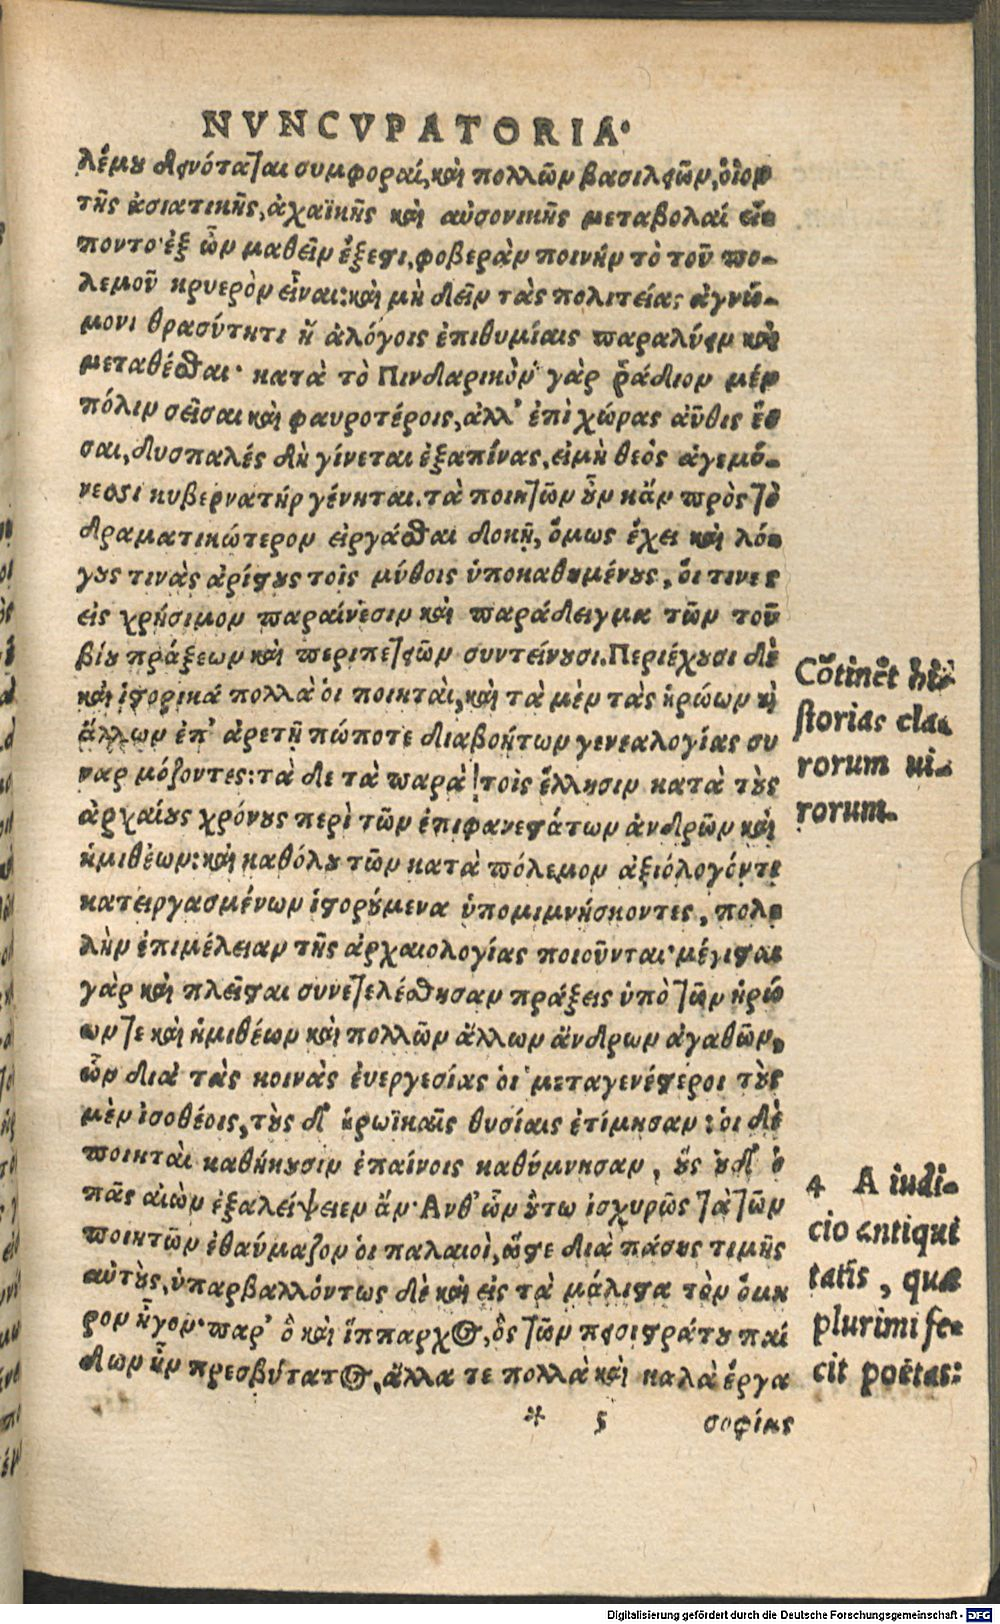 NVNCVPATORIA.
λέμου δεινόταται συμφοραί, καὶ πολλῶν βασιλειῶν, οἷον
τῆς ἀσιατικῆς, ἀχαϊκῆς καὶ αὐσονικῆς μεταβολαί εἵ-
ποντο· ἐξ ὧν μαθεῖν ἔξεστι, φοβερὰν ποινήν τὸ τοῦ πο-
λεμοῦ κρυερὸν εἶναι: καὶ μὴ δεῖν τὰς πολιτείας ἀγνώ-
μονι θρασύτητι ἢ ἀλόγοις ἐπιθυμίαις παραλύειν καὶ
μεταθέσθαι· κατὰ τὸ Πινδαρικὸν γὰρ ῥᾴδιον μὲν
πόλιν σεῖσαι καὶ φαυροτέροις, ἀλλ' ἐπὶ χώρας αὖθις ἕσ-
σαι, δυσπαλές δὴ γίνεται ἐξαπίνας, εἰμὴ θεὸς ἁγεμό-
νεσσι κυβερνατὴρ γένηται. τὰ ποιητῶν οὖν κἂν πρὸς τὸ
δραματικώτερον εἰργάσθαι δοκῇ, ὅμως ἔχει καὶ λό-
γους τινὰς ἀρίστους τοῖς μύθοις ὑποκαθημένους, οἵ τινες
εἰς χρήσιμον παραίνεσιν καὶ παράδειγμα τῶν τοῦ
βίου πράξεων καὶ περιπετειῶν συντείνουσι. Περιέχουσι δὲ
καὶ ἱστορικά πολλὰ οἱ ποιηταὶ, καὶ τὰ μὲν τὰς ἡρώων καὶ
ἄλλων ἐπ' ἀρετῇ πώποτε διαβοήτων γενεαλογίας συ
ναρμόζοντες: τὰ δε τὰ παρὰ τοῖς ἕλλησιν κατὰ τοὺς
ἀρχαίους χρόνους περὶ τῶν ἐπιφανεστάτων ἀνδρῶν καὶ
ἡμιθέων: καὶ καθόλου τῶν κατὰ πόλεμον ἀξιόλογόν τε
κατειργασμένων ἱστορούμενα ὑπομιμνήσκοντες, πολ-
λὴν ἐπιμέλειαν τῆς ἀρχαιολογίας ποιοῦνται· μέγισται
γὰρ καὶ πλεῖσται συνετελέσθησαν πράξεις ὑπὸ τῶν ἡρώ
ων τε καὶ ἡμιθέων καὶ πολλῶν ἄλλων ἄνδρων ἀγαθῶν,
ὧν διὰ τὰς κοινὰς ἐυεργεσίας οἱ μεταγενέστεροι τοὺς
μὲν ἰσοθέοις, τοὺς δ' ἡρωϊκαῖς θυσίαις ἐτίμησαν: οἱ δὲ
ποιηταὶ καθήκουσιν ἐπαίνοις καθύμνησαν, οὓς οὐδ' ὁ
πᾶς αἰὼν ἐξαλείψειεν ἄν· Ἀνθ' ὧν οὕτω ἰσχυρῶς τὰ τῶν
ποιητῶν ἐθαύμαζον οἱ παλαιοὶ, ὥστε διὰ πάσης τιμῆς
αὐτοὺς, ὑπαρβαλλόντως δὲ καὶ εἰς τὰ μάλιστα τὸν ὅμη
ρον ἦγον· παρ' ὃ καὶ ἵππαρχος, ὃς τῶν πεισιστράτου παί
δων ἦν πρεσβύτατος, ἄλλα τε πολλὰ καὶ καλὰ ἔργα
* 5 σοφίας
Cōtinēt hi-
storias cla-
rorum ui-
rorum.
4 A iudi-
cio antiqui
tatis, quæ
plurimi fe-
cit poëtas:
Digitalisierung gefördert durch die Deutsche Forschungsgemeinschaft - DFG